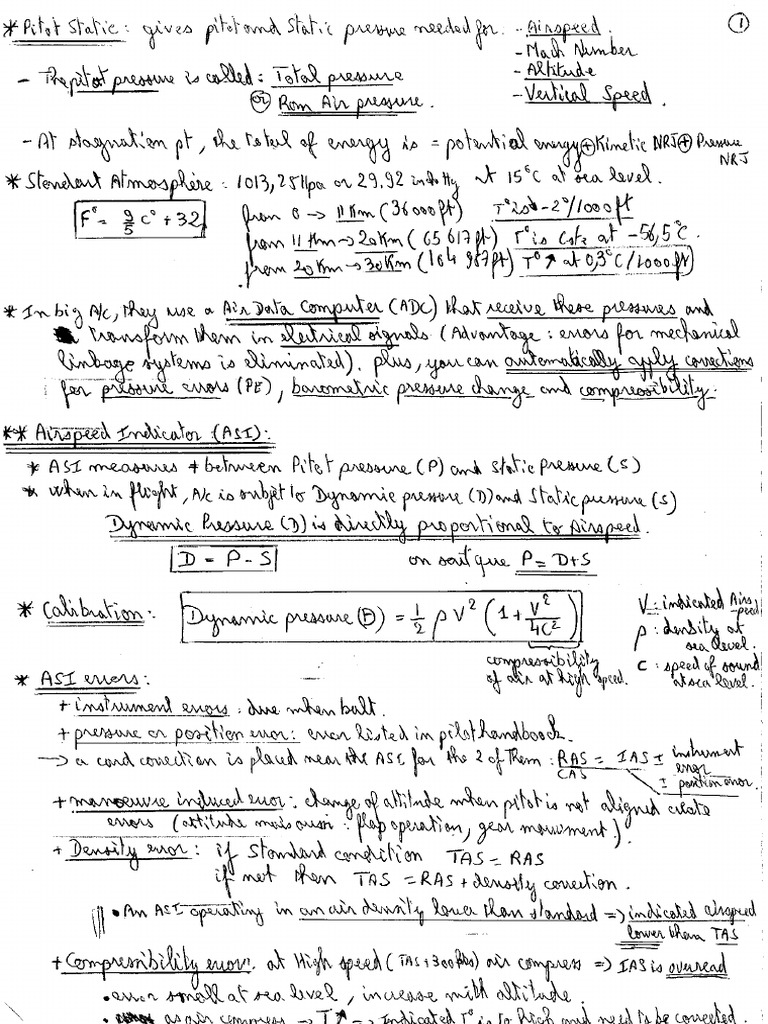 * Pitot Static : gives pitot and Static pressure needed for. - Airspeed. ①
- Mach Number
- Altitude
- Vertical Speed.
- The pitot pressure is called : Total pressure
or Ram Air pressure.
- At stagnation pt, the total of energy is = potential energy + Kinetic NRJ + Pressure NRJ
* Standart Atmosphere : 1013,25 Hpa or 29.92 in Hg at 15°C at sea level.
F° = 9/5 C° + 32
from 0 → 11 Km (36000 ft) T° is -2°/1000 ft
from 11 Km → 20 Km (65 617 ft) T° is at -56,5°C.
from 20 Km → 30 Km (104 987 ft) T° ↗ at 0,3°C/1000 ft
* In big A/c, they use a Air Data Computer (ADC) that receive these pressures and
transform them in electrical signals (Advantage : errors for mechanical
linkage systems is eliminated). plus, you can automatically apply corrections
for pressure errors (PE), barometric pressure change and compressibility.
** Airspeed Indicator (ASI) :
* ASI measures ≠ between Pitot pressure (P) and Static Pressure (S)
* when in flight, A/c is subjet to Dynamic pressure (D) and Static pressure (S)
Dynamic Pressure (D) is directly proportional to Airspeed.
D = P - S on sait que P = D+S
* Calibration : Dynamic pressure = 1/2 ρ V² (1 + V²/4C²)
V : indicated Airspeed
ρ : density at sea level.
C : speed of sound at sea level.
compressibility
of air at high speed.
* ASI errors :
+ instrument errors : due when built.
+ pressure or position error : error listed in pilot handboock.
→ a card correction is placed near the ASI for the 2 of them : RAS = IAS ± instrument error
CAS ± position error.
+ manoeuvre induced error : change of attitude when pitot is not aligned create
errors (attitude mais aussi : flap operation, gear mouvment).
+ Density error : if Standard condition TAS = RAS
if not then TAS = RAS + density correction.
• An ASI operating in an air density lower than standard => indicated airspeed
lower than TAS
+ Compressibility error. at High speed (TAS +300 kts) air compress => IAS is overread
• error small at sea level, increase with altitude.
• as air compress → T° ↗ => Indicated T° is to high and need to be corrected.